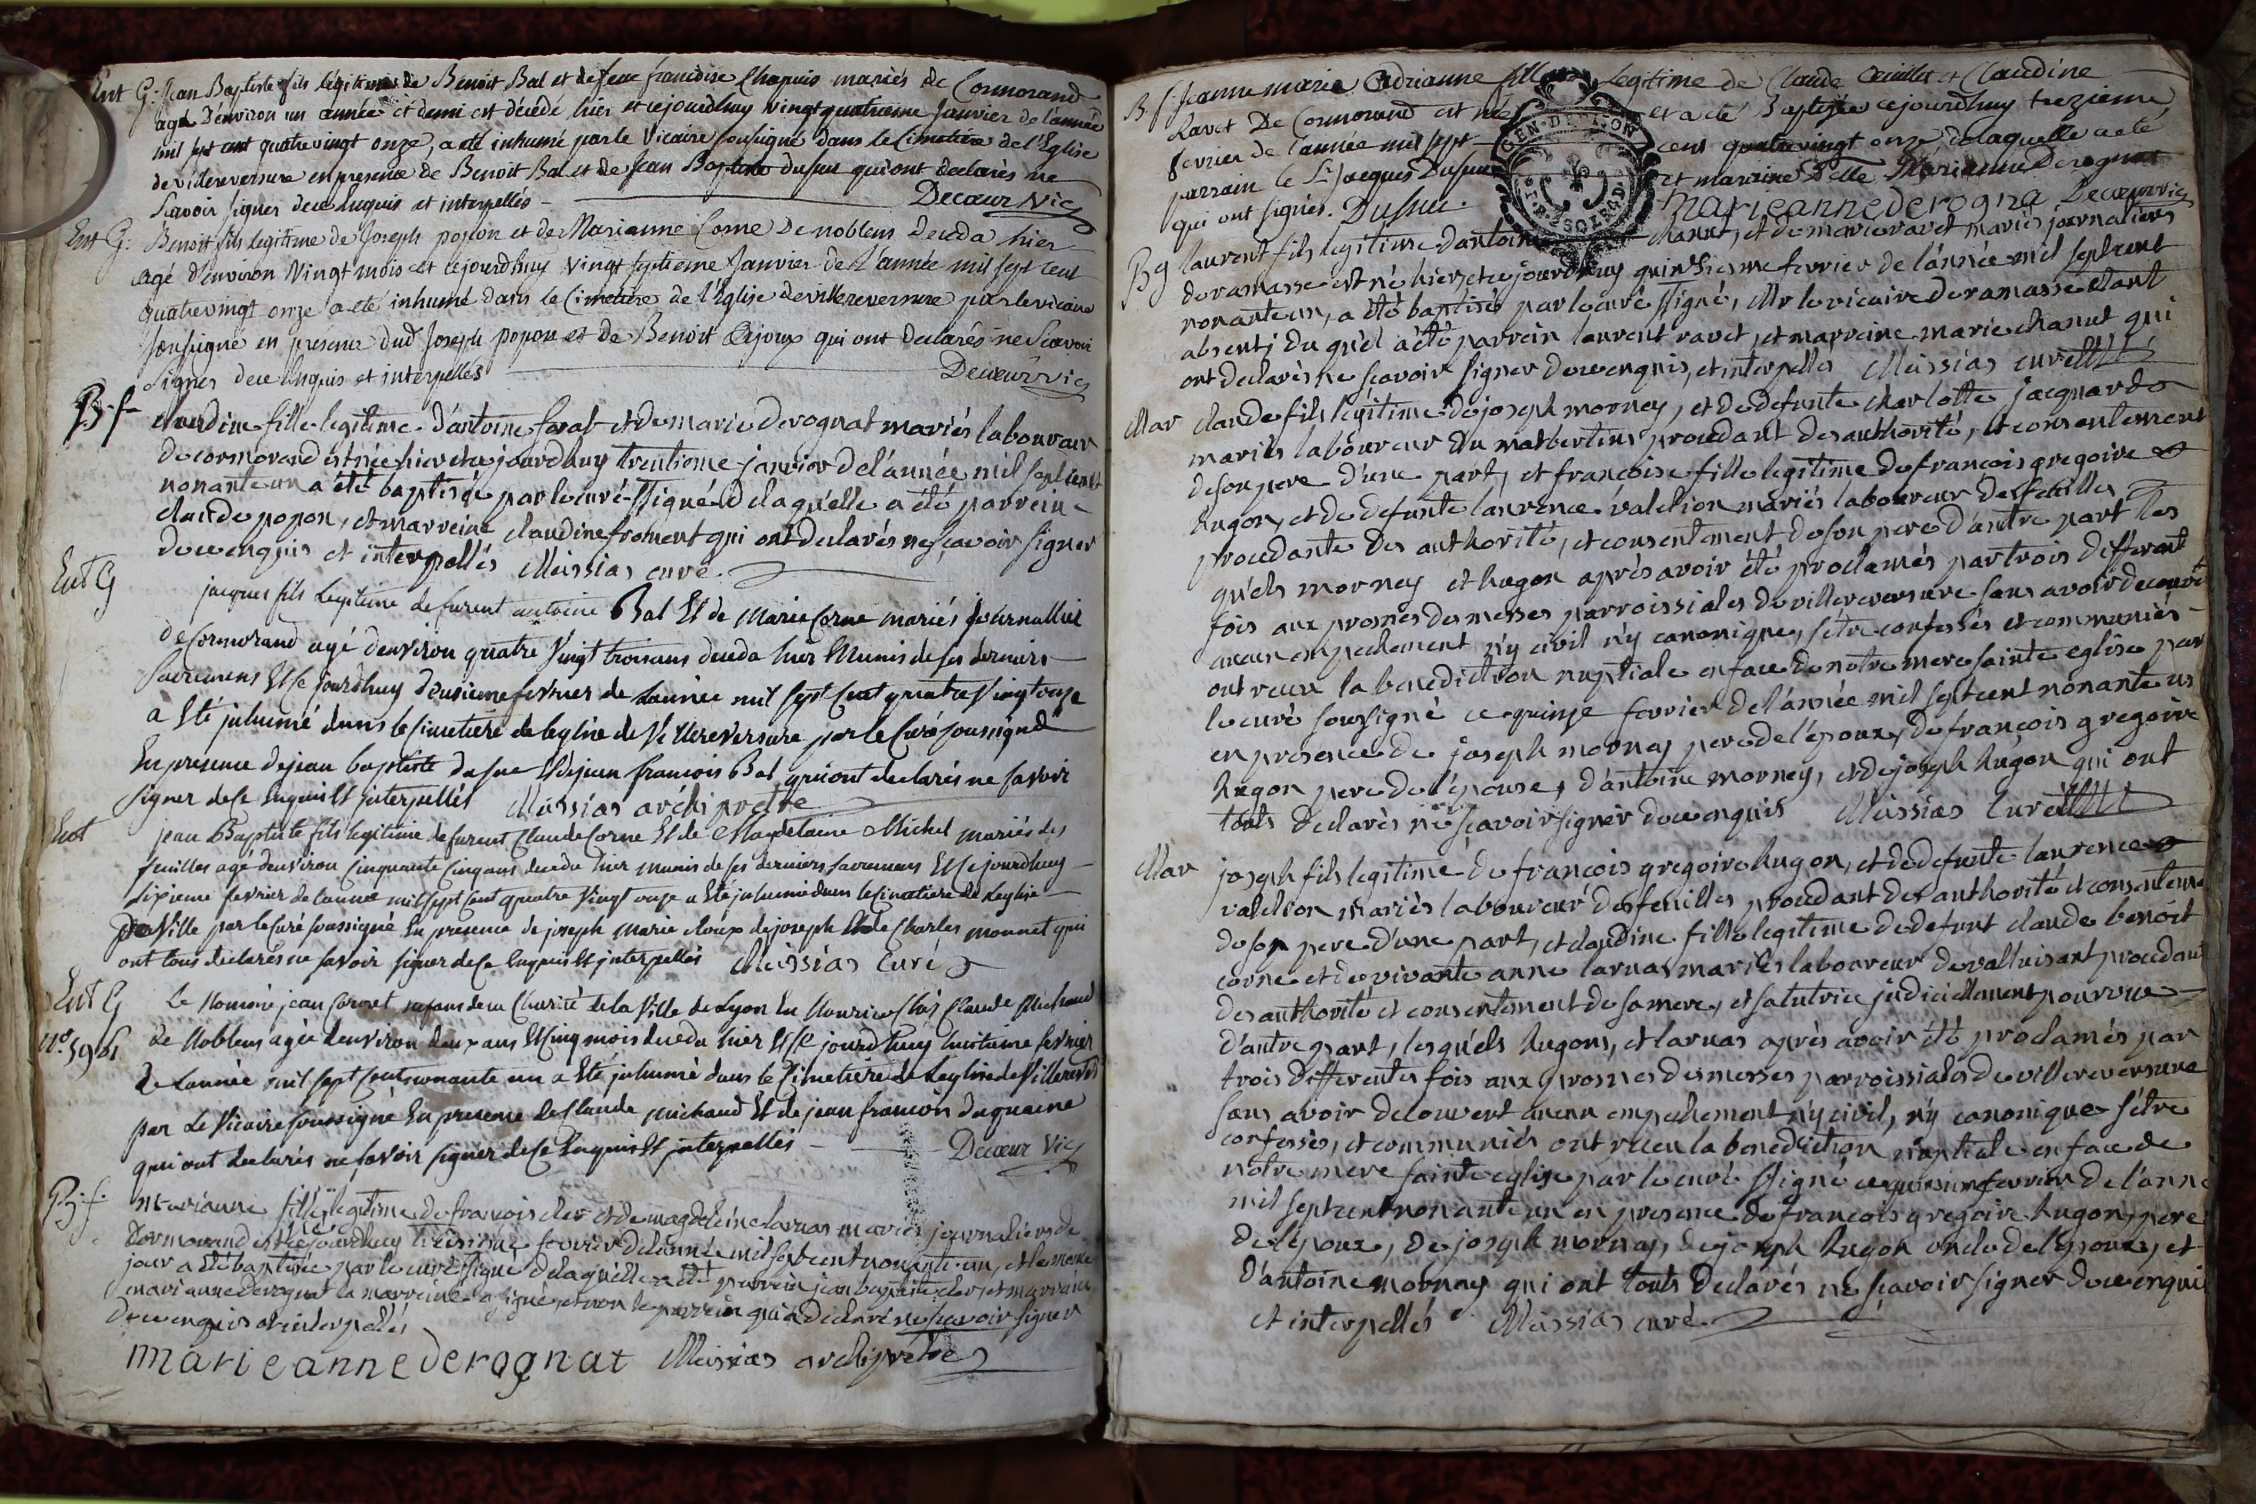 Ent G: Jean Baptiste fils légitime de Benoit Bal et de feue francoise Chapuis mariés de Cormorand
agé d'environ un année et demi est décédé hier et cejourdhuy vingt quatrieme Janvier de l'année
mil sept cent quatrevingt onze, a eté inhumé par le Vicaire soussigné dans le Cimetiere de l'Eglise
de villereversure en presence de Benoit Bal et de Jean Baptiste Dufur qui ont declarés ne
scavoir signer dece Enquis et interpellés - Decœur Vic
Ent G: Benoit fils légitime de Joseph popon et de Marianne Corne de noblens deceda hier
agé d'environ Vingt mois et cejourdhuy Vingt septieme Janvier de l'année mil sept cent
quatrevingt onze a eté inhumé dans le Cimetiere de l'Eglise de villereversure par le vicaire
soussigné en présence dud Joseph popon et de Benoit qui ont declarés ne scavoir
signer dece Enquis et interpellés Decœur vic
B. f claudine fille legitime d'antoine farat et de marie derognat mariés laboureur
de cormorand est née hier et cejourdhuy trentieme janvier de l'année mil sept cent
nonante un a été baptisée par le curé ssigné delaquelle a été parrein
claude popon, et marreine claudine froment qui ont declarés ne scavoir signer
dece enquis et interpellés Messias curé.
Ent G jacques fils legitime de furent antoine Bal Et de Marie Corne mariés journallier
de Cormorand agé denviron quatre Vingt trois ans deceda hier Munis de ses derniers
sacremens Et Ce jourdhuy deusieme fevrier de lannée mil sept Cent quatre Vingt onze
a Eté juhumé dans le Cimetiere de leglise de Villereversure par le Curé soussigné
En presence de jean baptiste dufur Et de jean francois Bal qui ont declarés ne savoir
signer de Ce Enquis Et jnterpellés Messias archiprêtre
Ent jean Baptiste fils legitime de furent Claude Corne Et de Magdelaine Michel mariés des
feuilles agé denviron Cinquante Cinq ans deceda hier munis de ses derniers sacremens Et Ce jourdhuy
sixieme fevrier de lannée mil sept Cent quatre Vingt onze a Eté juhumé dans le Cimetiere de leglise
de Ville par le Curé soussigné En presence de joseph Marie de joseph Et de Charles monnet qui
ont tous declarés ne savoir signer de Ce Enquis Et jnterpellés Messias Curé
Ent G Le Nommé jean enfans de la Charité de la Ville de Lyon En Nourice Chés Claude Michaud
N° 5961 de Noblens agée denviron deux ans Et Cinq mois deceda hier Et Ce jourdhuy huitieme fevrier
de Lannée mil sept Cent nonante un a Eté juhumé dans le Cimetiere de Leglise de Villerevers
par Le Vicaire soussigné En presence de Claude Michaud Et de jean francois duquaine
qui ont declarés ne savoir signer de Ce Enquis Et jnterpellés - Decœur Vic
B. f. Marianne fille legitime de francois cler et de magdeleine larnas mariés journaliers de
Cormorand est née cejourdhuy treisieme fevrier de l'année mil sept cent nonante un, et le meme
jour a été baptisée par le curé ssigné delaquelle a été parrein jean baptiste cler, et marreine
mari anne derognat la marreine a signée, et non le parrein qui a declaré ne scavoir signer
dece enquis et interpellés
marieanne derognat Messias archiprêtre
B. f. Jeanne marie Adrianne fille legitime de Claude Œuillet et Claudine
Ravet De Cormorand est née et a été Baptisée cejourdhuy trezieme
fevrier de l'année mil sept cent quatrevingt onze, delaquelle a eté
parrain le Sr Jacques Dufur et marrine Delle Marianne derognat
qui ont signés. Dufur. marieanne derogna Decœur vic
GEN. DE DIJON
B g laurent fils legitime d'antoine chanut, et de marie ravet mariés journaliers
de ramasse est né hier, et cejourdhuy quinsiesme fevrier de l'année mil sept cent
nonante un, a été baptisé par le curé ssigné, Mr le vicaire de ramasse etant
absent; du quel a été parrein laurent ravet, et marreine marie chanut qui
ont declarés ne scavoir signer dece enquis, et interpellés Messias curé
Mar claude fils légitime de joseph mornay, et de defunte charlotte jacquard
mariés laboureur du procedant des authorité, et consentement
de son pere d'une part, et francoise fille legitime de francois gregoire
hugon, et de defunte laurence valchon mariés laboureur des feuilles
procedante des authorité, et consentement de son pere d'autre part les
quels mornay et hugon après avoir été proclamés par trois different
fois aux prosnes des messes parroissiales de villereversure sans avoir decouvert
aucun empechement n'y civil n'y canonique, s'être confessés et communiés
ont recu la benediction nuptiale en face de notre mere sainte eglise par
le curé soussigné ce quinze fevrier de l'année mil sept cent nonante un
en presence de joseph mornay pere de l'époux, de francois gregoire
hugon pere de l'épouse, d'antoine mornay, et de joseph hugon qui ont
touts declarés ne scavoir signer dece enquis Messias Curé
Mar joseph fils legitime de francois gregoire hugon, et de defunte laurence
valchon mariés laboureur des feuilles procedant des authorité et consenteme
de son pere d'une part, et claudine fille legitime de defunt claude benoit
corne et de vivante anne larnas mariés laboureur de valluisant procedant
des authorité et consentement de sa mere, et sa tutrice judiciellement pourvue
d'autre part, lesquels hugons, et larnas après avoir été proclamés par
trois differentes fois aux prosnes des messes parroissiales de villereversure
sans avoir decouvert aucun empechement n'y civil, n'y canonique s'être
confessés, et communiés ont recu la benediction nuptiale en face de
notre mere sainte eglise par le curé ssigné ce quinsieme fevrier de l'anne
mil sept cent nonante un en presence de francois gregoire hugon pere
de l'époux, de joseph mornay, de joseph hugon oncle de l'époux, et
d'antoine mornay qui ont touts declarés ne scavoir signer dece enqui
et interpellés Messias curé.